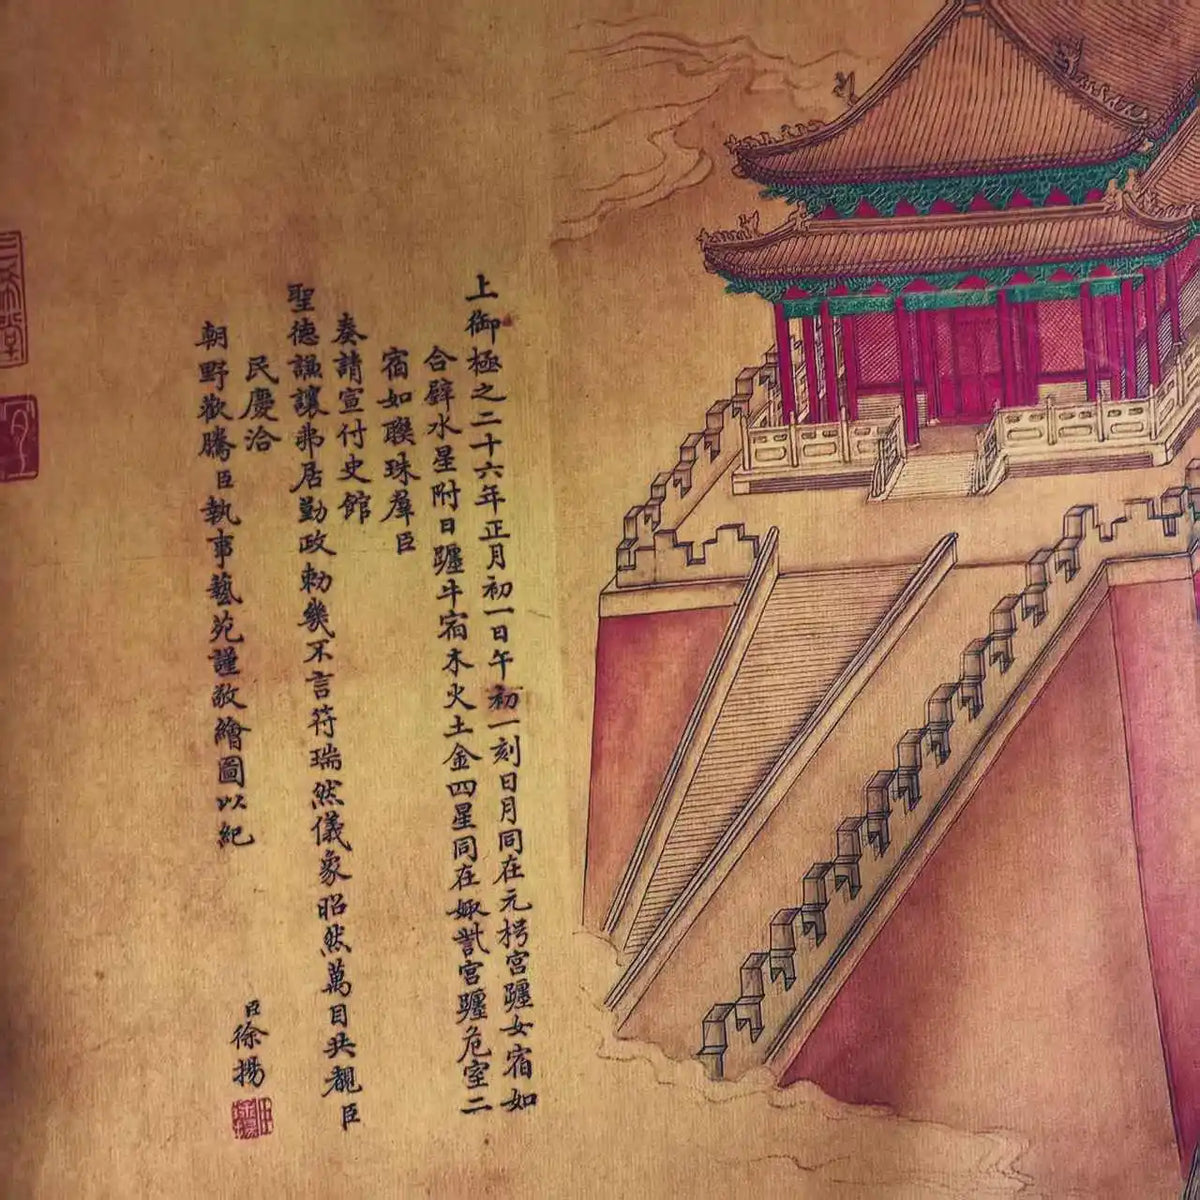 上御極之二十六年正月初一日午初一刻日月同在元枵宮躔女宿如
合璧水星附日躔牛宿木火土金四星同在娵訾宮躔危室二
宿如聯珠羣臣
奏請宣付史館
聖德謙讓弗居勤政勅幾不言符瑞然儀象昭然萬目共覩臣
民慶洽
朝野歡騰臣執事藝苑謹敬繪圖以紀
臣徐揚